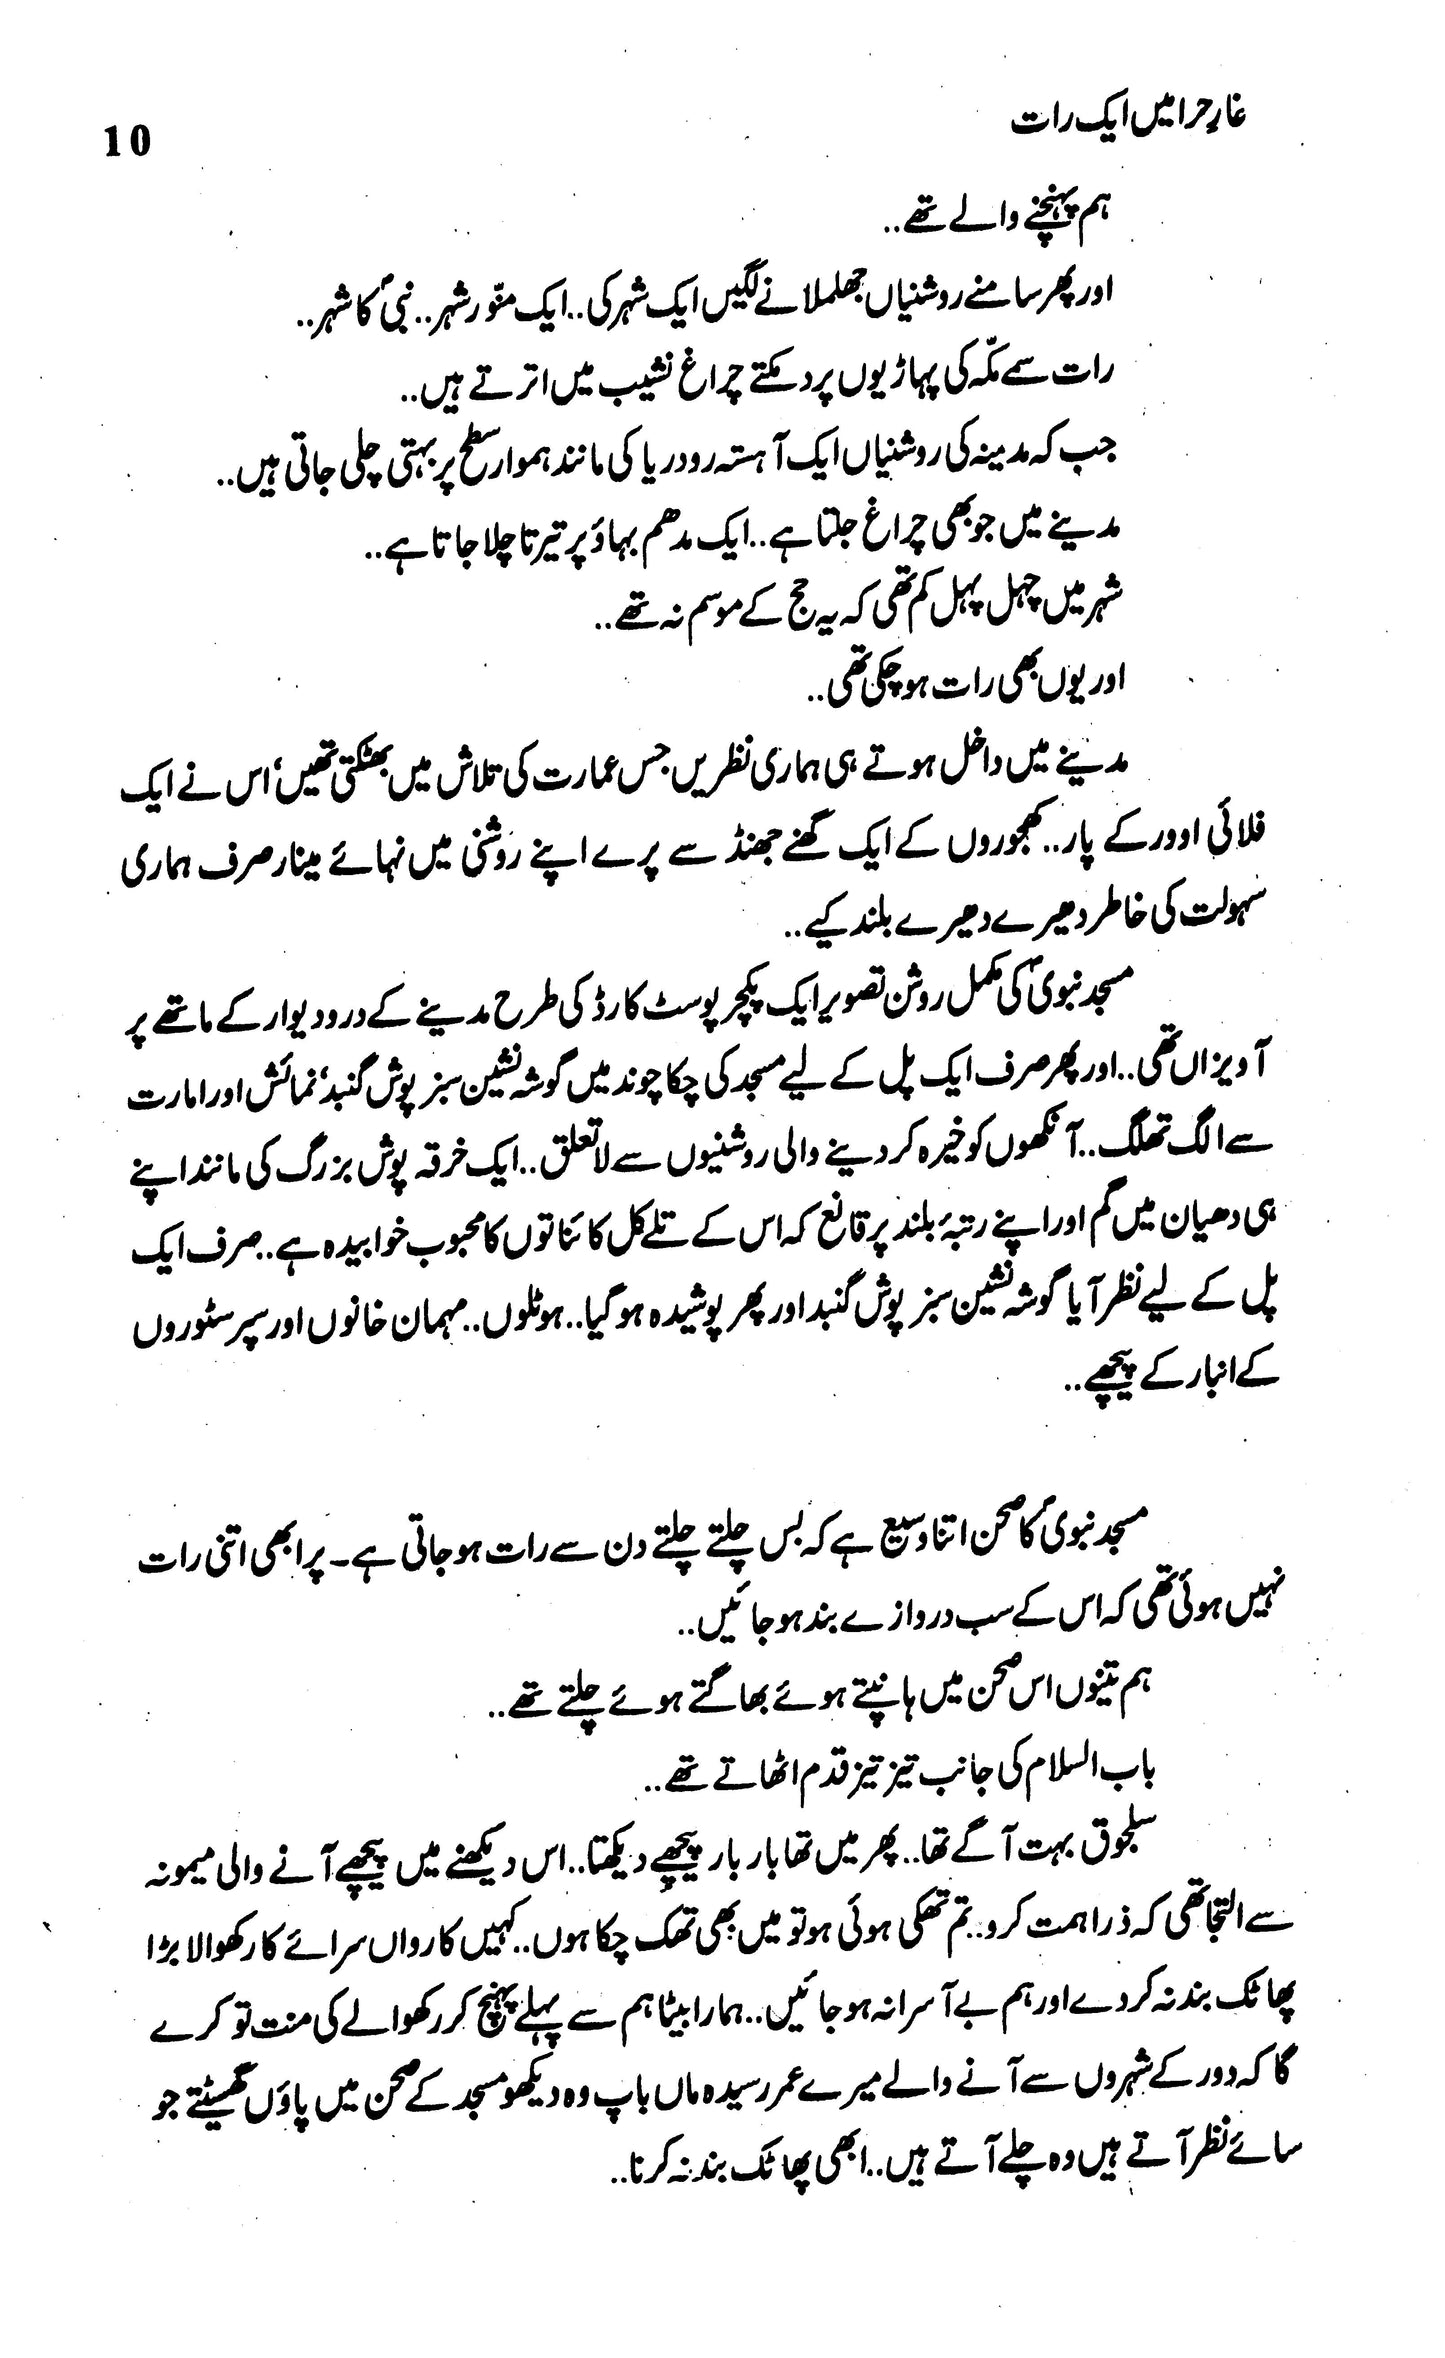 غارِ حرا میں ایک رات
10
ہم پہنچنے والے تھے..
اور پھر سامنے روشنیاں جھلملانے لگیں ایک شہر کی..ایک منوّر شہر..نبیؐ کا شہر..
رات سمے مکّہ کی پہاڑیوں پر دمکتے چراغ نشیب میں اترتے ہیں..
جب کہ مدینہ کی روشنیاں ایک آہستہ رو دریا کی مانند ہموار سطح پر بہتی چلی جاتی ہیں..
مدینے میں جو بھی چراغ جلتا ہے..ایک مدھم بہاؤ پر تیرتا چلا جاتا ہے..
شہر میں چہل پہل کم تھی کہ یہ حج کے موسم نہ تھے..
اور یوں بھی رات ہو چکی تھی..
مدینے میں داخل ہوتے ہی ہماری نظریں جس عمارت کی تلاش میں بھٹکتی تھیں‘ اس نے ایک
فلائی اوور کے پار..کھجوروں کے ایک گھنے جھنڈ سے پرے اپنے روشنی میں نہائے مینار صرف ہماری
سہولت کی خاطر دھیرے دھیرے بلند کیے..
مسجد نبویؐ کی مکمل روشن تصویر ایک پکچر پوسٹ کارڈ کی طرح مدینے کے در و دیوار کے ماتھے پر
آویزاں تھی..اور پھر صرف ایک پل کے لیے مسجد کی چکاچوند میں گوشہ نشین سبز پوش گنبد‘ نمائش اور امارت
سے الگ تھلگ..آنکھوں کو خیرہ کر دینے والی روشنیوں سے لاتعلق..ایک خرقہ پوش بزرگ کی مانند اپنے
ہی دھیان میں گم اور اپنے رتبۂ بلند پر قانع کہ اس کے تلے کل کائناتوں کا محبوب خوابیدہ ہے..صرف ایک
پل کے لیے نظر آیا گوشہ نشین سبز پوش گنبد اور پھر پوشیدہ ہو گیا..ہوٹلوں..مہمان خانوں اور سپر سٹوروں
کے انبار کے پیچھے..
مسجد نبویؐ کا صحن اتنا وسیع ہے کہ بس چلتے چلتے دن سے رات ہو جاتی ہے۔ پر ابھی اتنی رات
نہیں ہوئی تھی کہ اس کے سب دروازے بند ہو جائیں..
ہم تینوں اس صحن میں ہانپتے ہوئے بھاگتے ہوئے چلتے تھے..
باب السلام کی جانب تیز تیز قدم اٹھاتے تھے..
سلجوق بہت آگے تھا..پھر میں تھا بار بار پیچھے دیکھتا..اس دیکھنے میں پیچھے آنے والی میمونہ
سے التجا تھی کہ ذرا ہمت کرو..تم تھکی ہوئی ہو تو میں بھی تھک چکا ہوں..کہیں کارواں سرائے کا رکھوالا بڑا
پھاٹک بند نہ کر دے اور ہم بے آسرا نہ ہو جائیں..ہمارا بیٹا ہم سے پہلے پہنچ کر رکھوالے کی منت تو کرے
گا کہ دور کے شہروں سے آنے والے میرے عمر رسیدہ ماں باپ وہ دیکھو مسجد کے صحن میں پاؤں گھسیٹتے جو
سائے نظر آتے ہیں وہ چلے آتے ہیں..ابھی پھاٹک بند نہ کرنا..